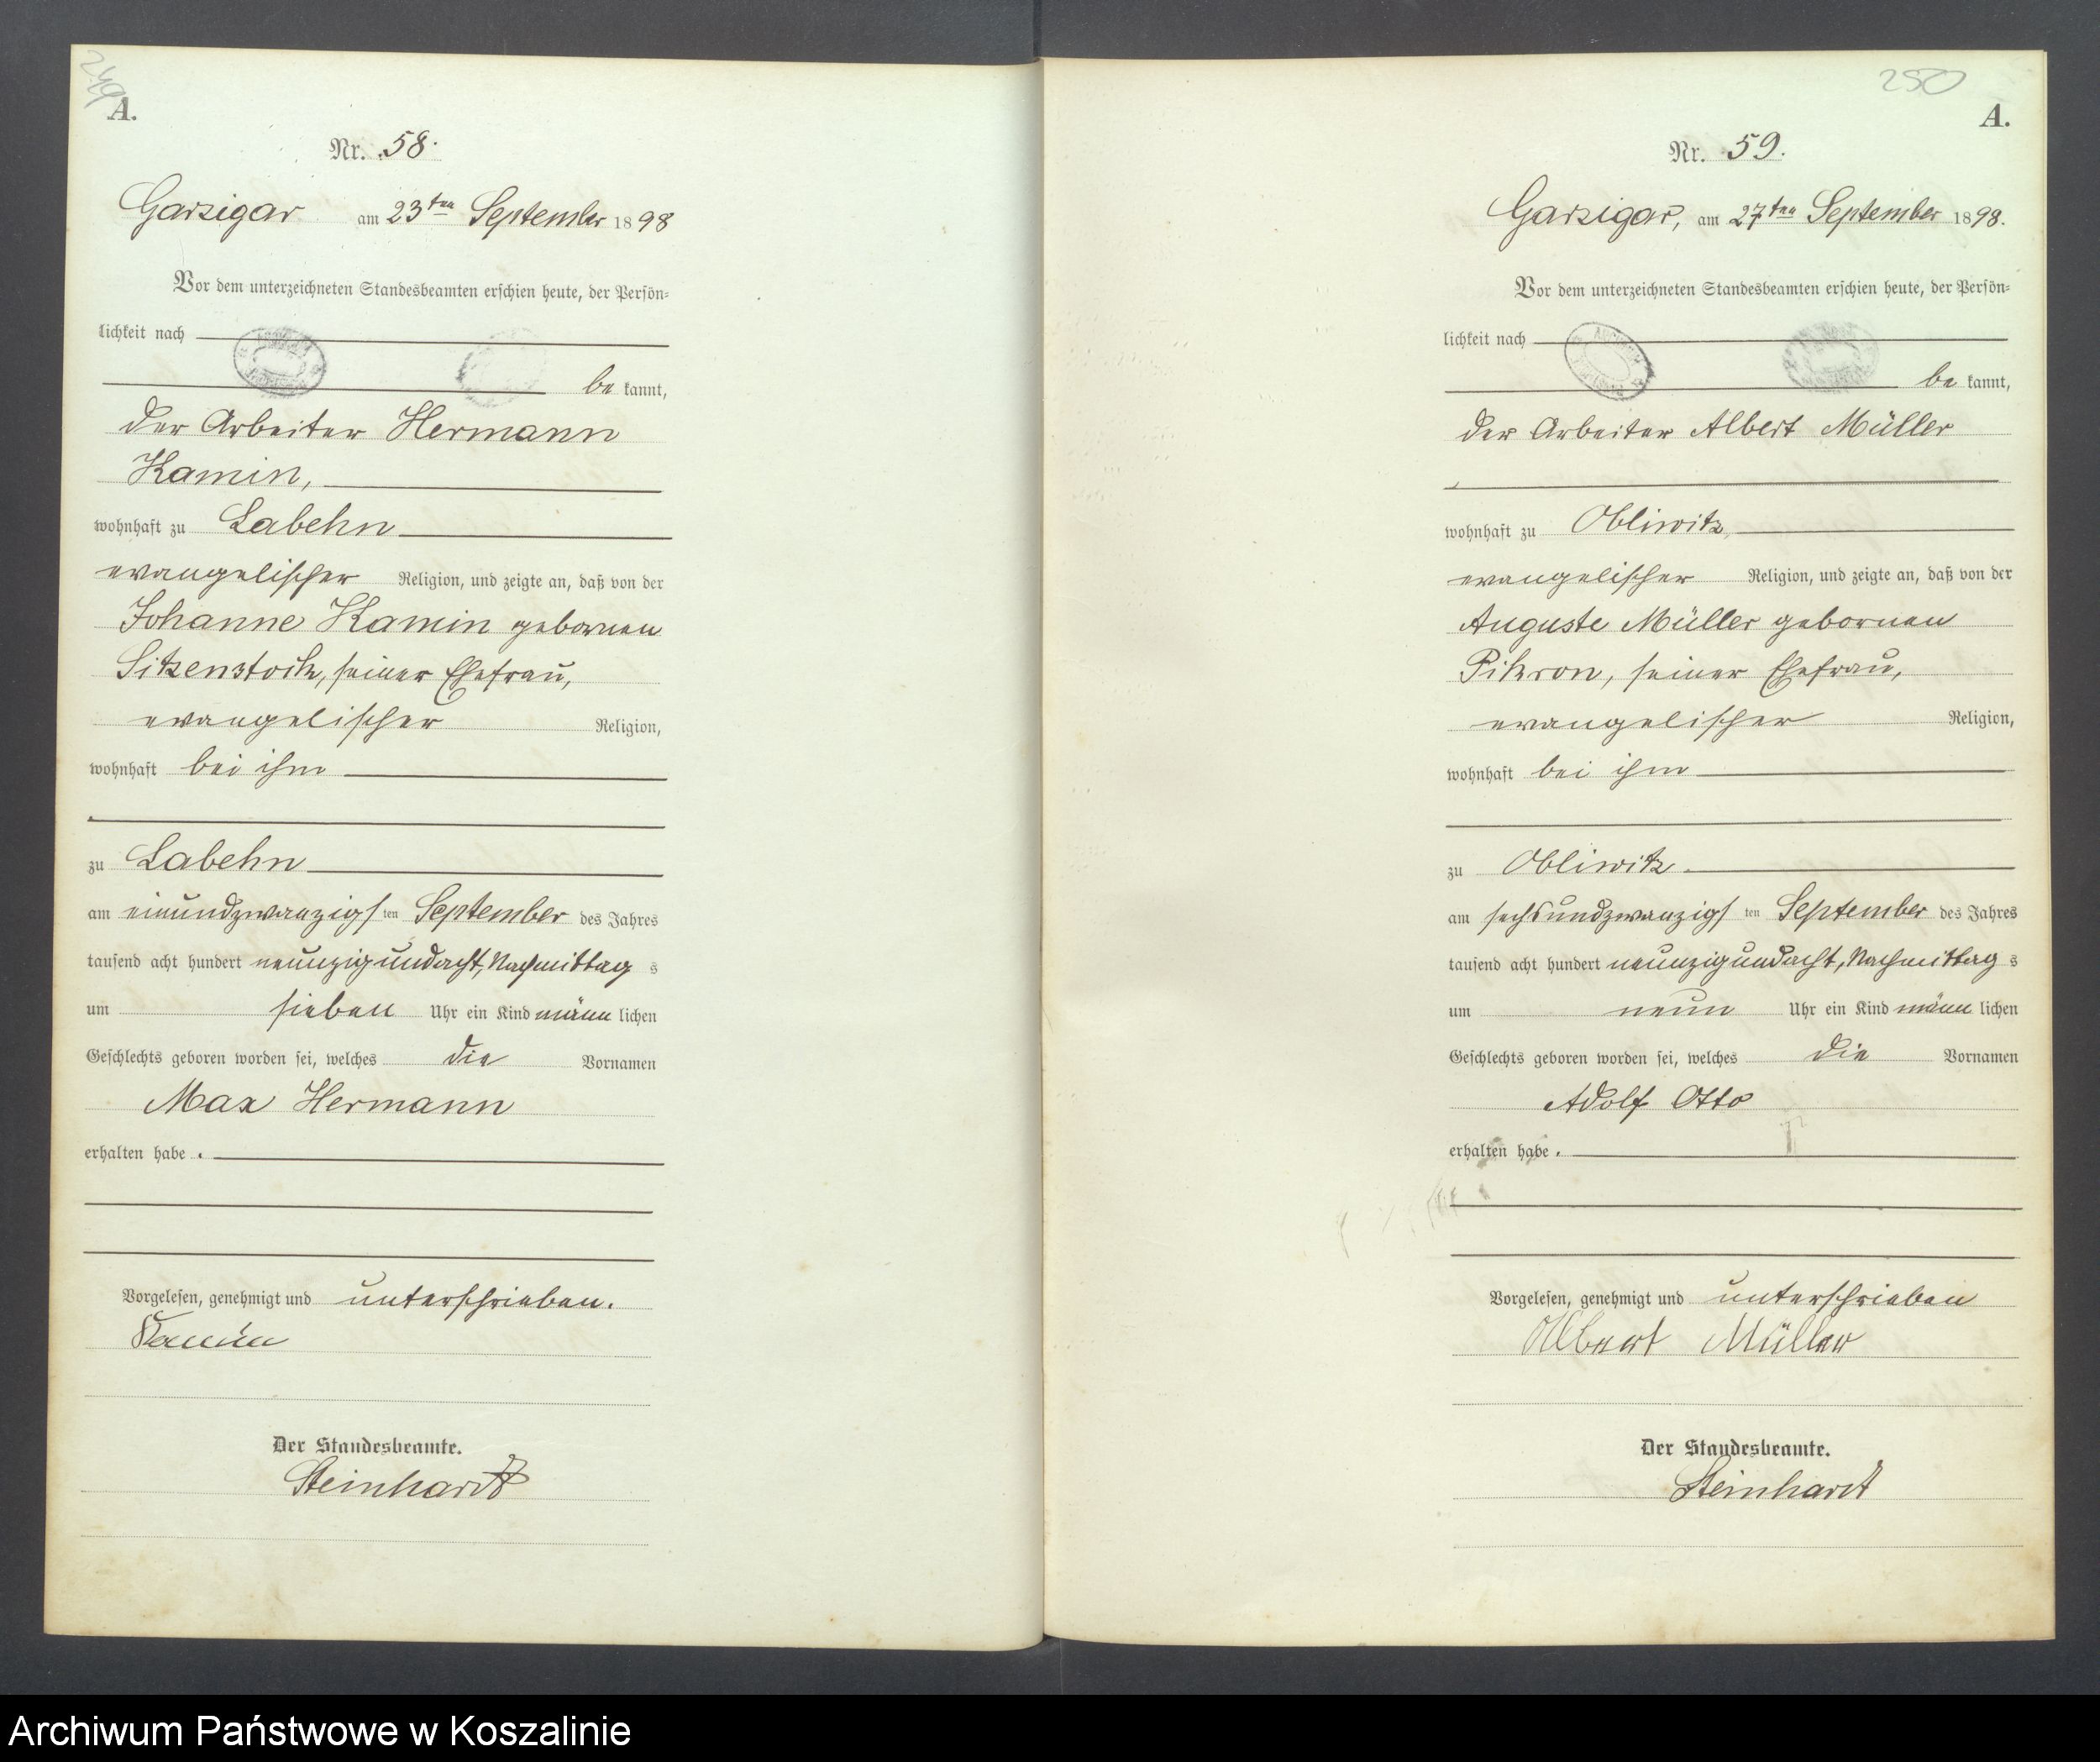 249
A.
Nr. 58.
Garzigar am 23ten September 1898
Vor dem unterzeichneten Standesbeamten erschien heute, der Persön-
lichkeit nach
be kannt,
der Arbeiter Hermann
Kamin,
wohnhaft zu Labehn
evangelischer Religion, und zeigte an, daß von der
Johanne Kamin gebornen
Sitzenstock, seiner Ehefrau,
evangelischer Religion,
wohnhaft bei ihm
zu Labehn
am einundzwanzigs ten September des Jahres
tausend acht hundert neunzigundacht, Nachmittag s
um sieben Uhr ein Kind männ lichen
Geschlechts geboren worden sei, welches die Vornamen
Max Hermann
erhalten habe.
Vorgelesen, genehmigt und unterschrieben.
Kamin
Der Standesbeamte.
Steinhardt
250
A.
Nr. 59.
Garzigar, am 27ten September 1898.
Vor dem unterzeichneten Standesbeamten erschien heute, der Persön-
lichkeit nach
be kannt,
der Arbeiter Albert Müller
wohnhaft zu Obliwitz,
evangelischer Religion, und zeigte an, daß von der
Auguste Müller gebornen
Pikron, seiner Ehefrau,
evangelischer Religion,
wohnhaft bei ihm
zu Obliwitz
am sechsundzwanzigs ten September des Jahres
tausend acht hundert neunzigundacht, Nachmittag s
um neun Uhr ein Kind männ lichen
Geschlechts geboren worden sei, welches die Vornamen
Adolf Otto
erhalten habe.
Vorgelesen, genehmigt und unterschrieben
Albert Müller
Der Standesbeamte.
Steinhardt
Archiwum Państwowe w Koszalinie